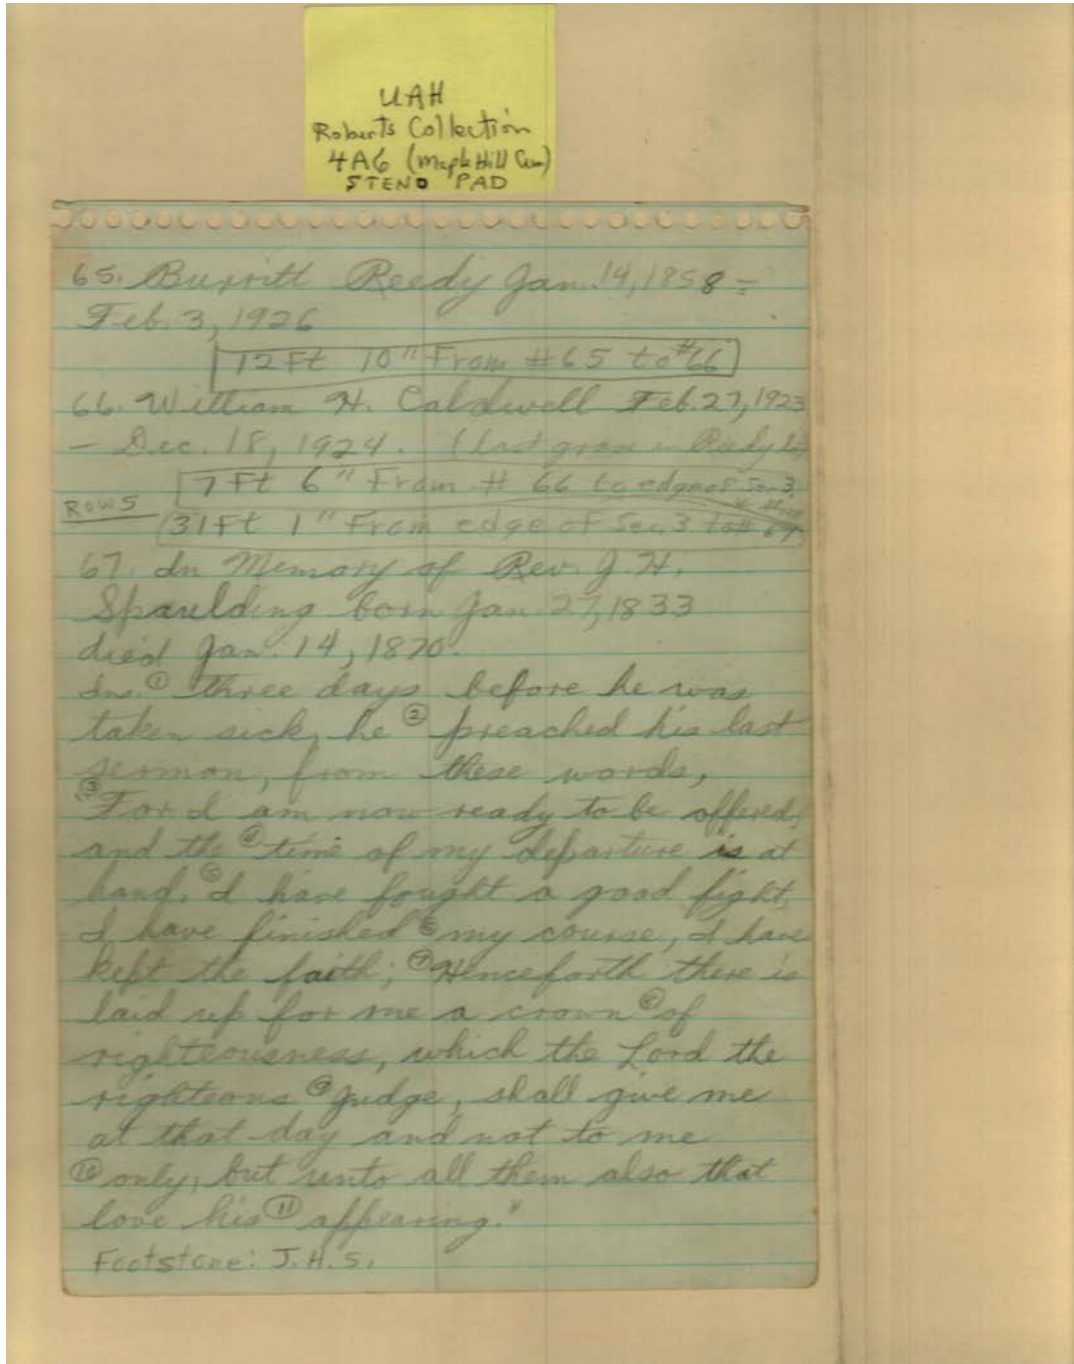 UAH
Roberts Collection
4A6 (Maple Hill Cem)
STENO PAD
65. Burritt Reedy Jan. 14, 1858 =
Feb. 3, 1926
12 Ft 10" From #65 to #66
66. William H. Caldwell Feb. 27, 1923
— Dec. 18, 1924. (last grave in Reedy lot)
7 Ft 6" From # 66 to edge of Sec 3,
ROW 5
31 Ft 1" From edge of Sec. 3 to # 67
67. In Memory of Rev. J. H.
Spaulding born Jan. 27, 1833
died Jan. 14, 1870.
Ins. ① Three days before he was
taken sick, he ② preached his last
sermon, from these words,
"③ For I am now ready to be offered,
and the ④ time of my departure is at
hand. ⑤ I have fought a good fight,
I have finished ⑥ my course, I have
kept the faith; ⑦ Henceforth there is
laid up for me a crown ⑧ of
righteousness, which the Lord the
righteous ⑨ Judge, shall give me
at that day and not to me
⑩ only, but unto all them also that
love his ⑪ appearing."
Footstone: J.H.S.